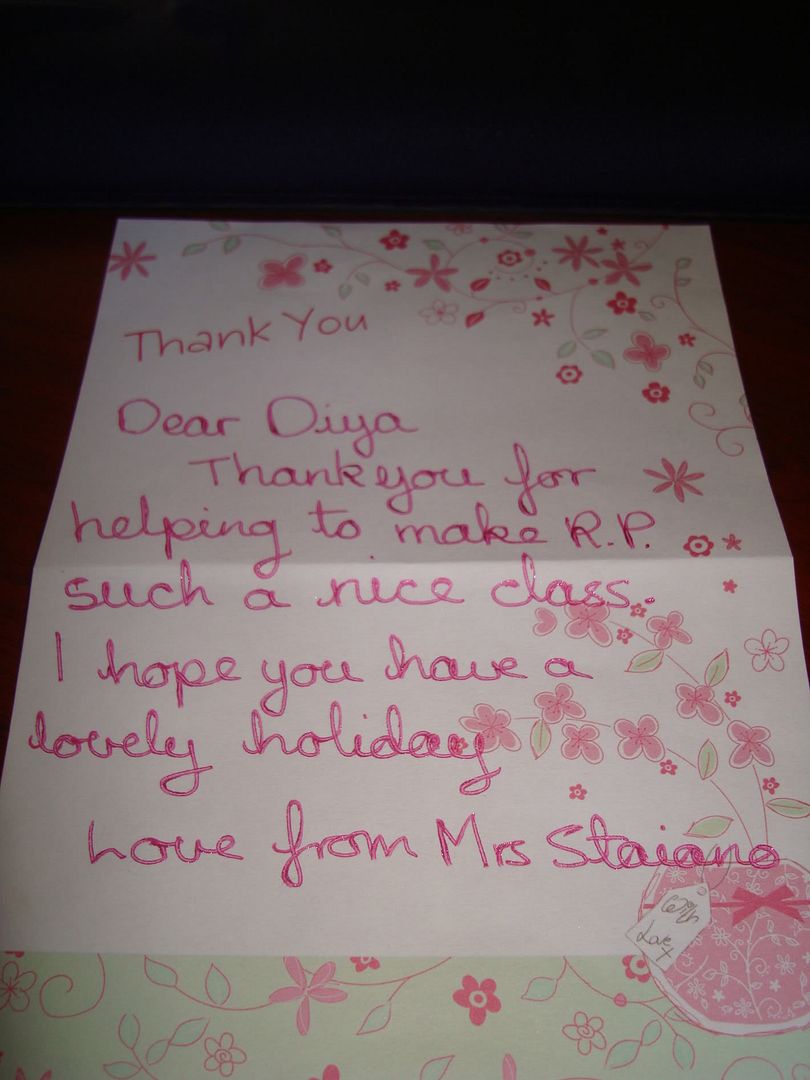 Thank You
Dear Diya
Thankyou for
helping to make R.P.
such a nice class.
I hope you have a
lovely holiday
Love from Mrs Staiano
With
Love
x